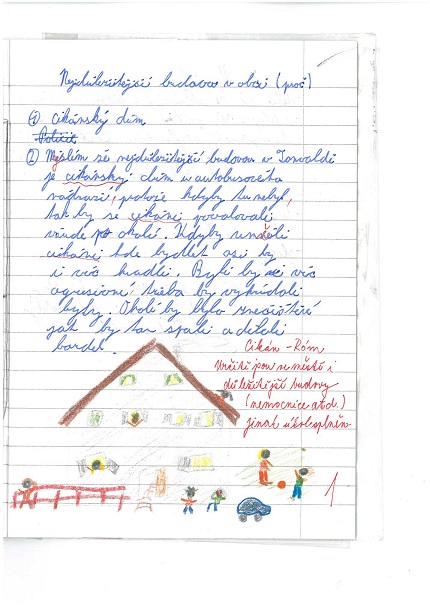 Nejdůležitější budova v obci (proč)
① cikánský dům
Policie
② Myslím že nejdůležitější budova v
je cikánský dům u autobusového
nádraží, protože kdyby tu nebyl,
tak by se cikáni povalovali
všude po okolí. Kdyby neměli
cikáni kde bydlet asi by
i víc kradli. Byli by i víc
agresivní třeba by vykrádali
byty. Okolí by bylo znečištěné
jak by tam spali a dělali
bordel.
Cikán - Róm
Určitě jsou ve městě i
důležitější budovy
(nemocnice atd.)
jinak úkol splněn
1